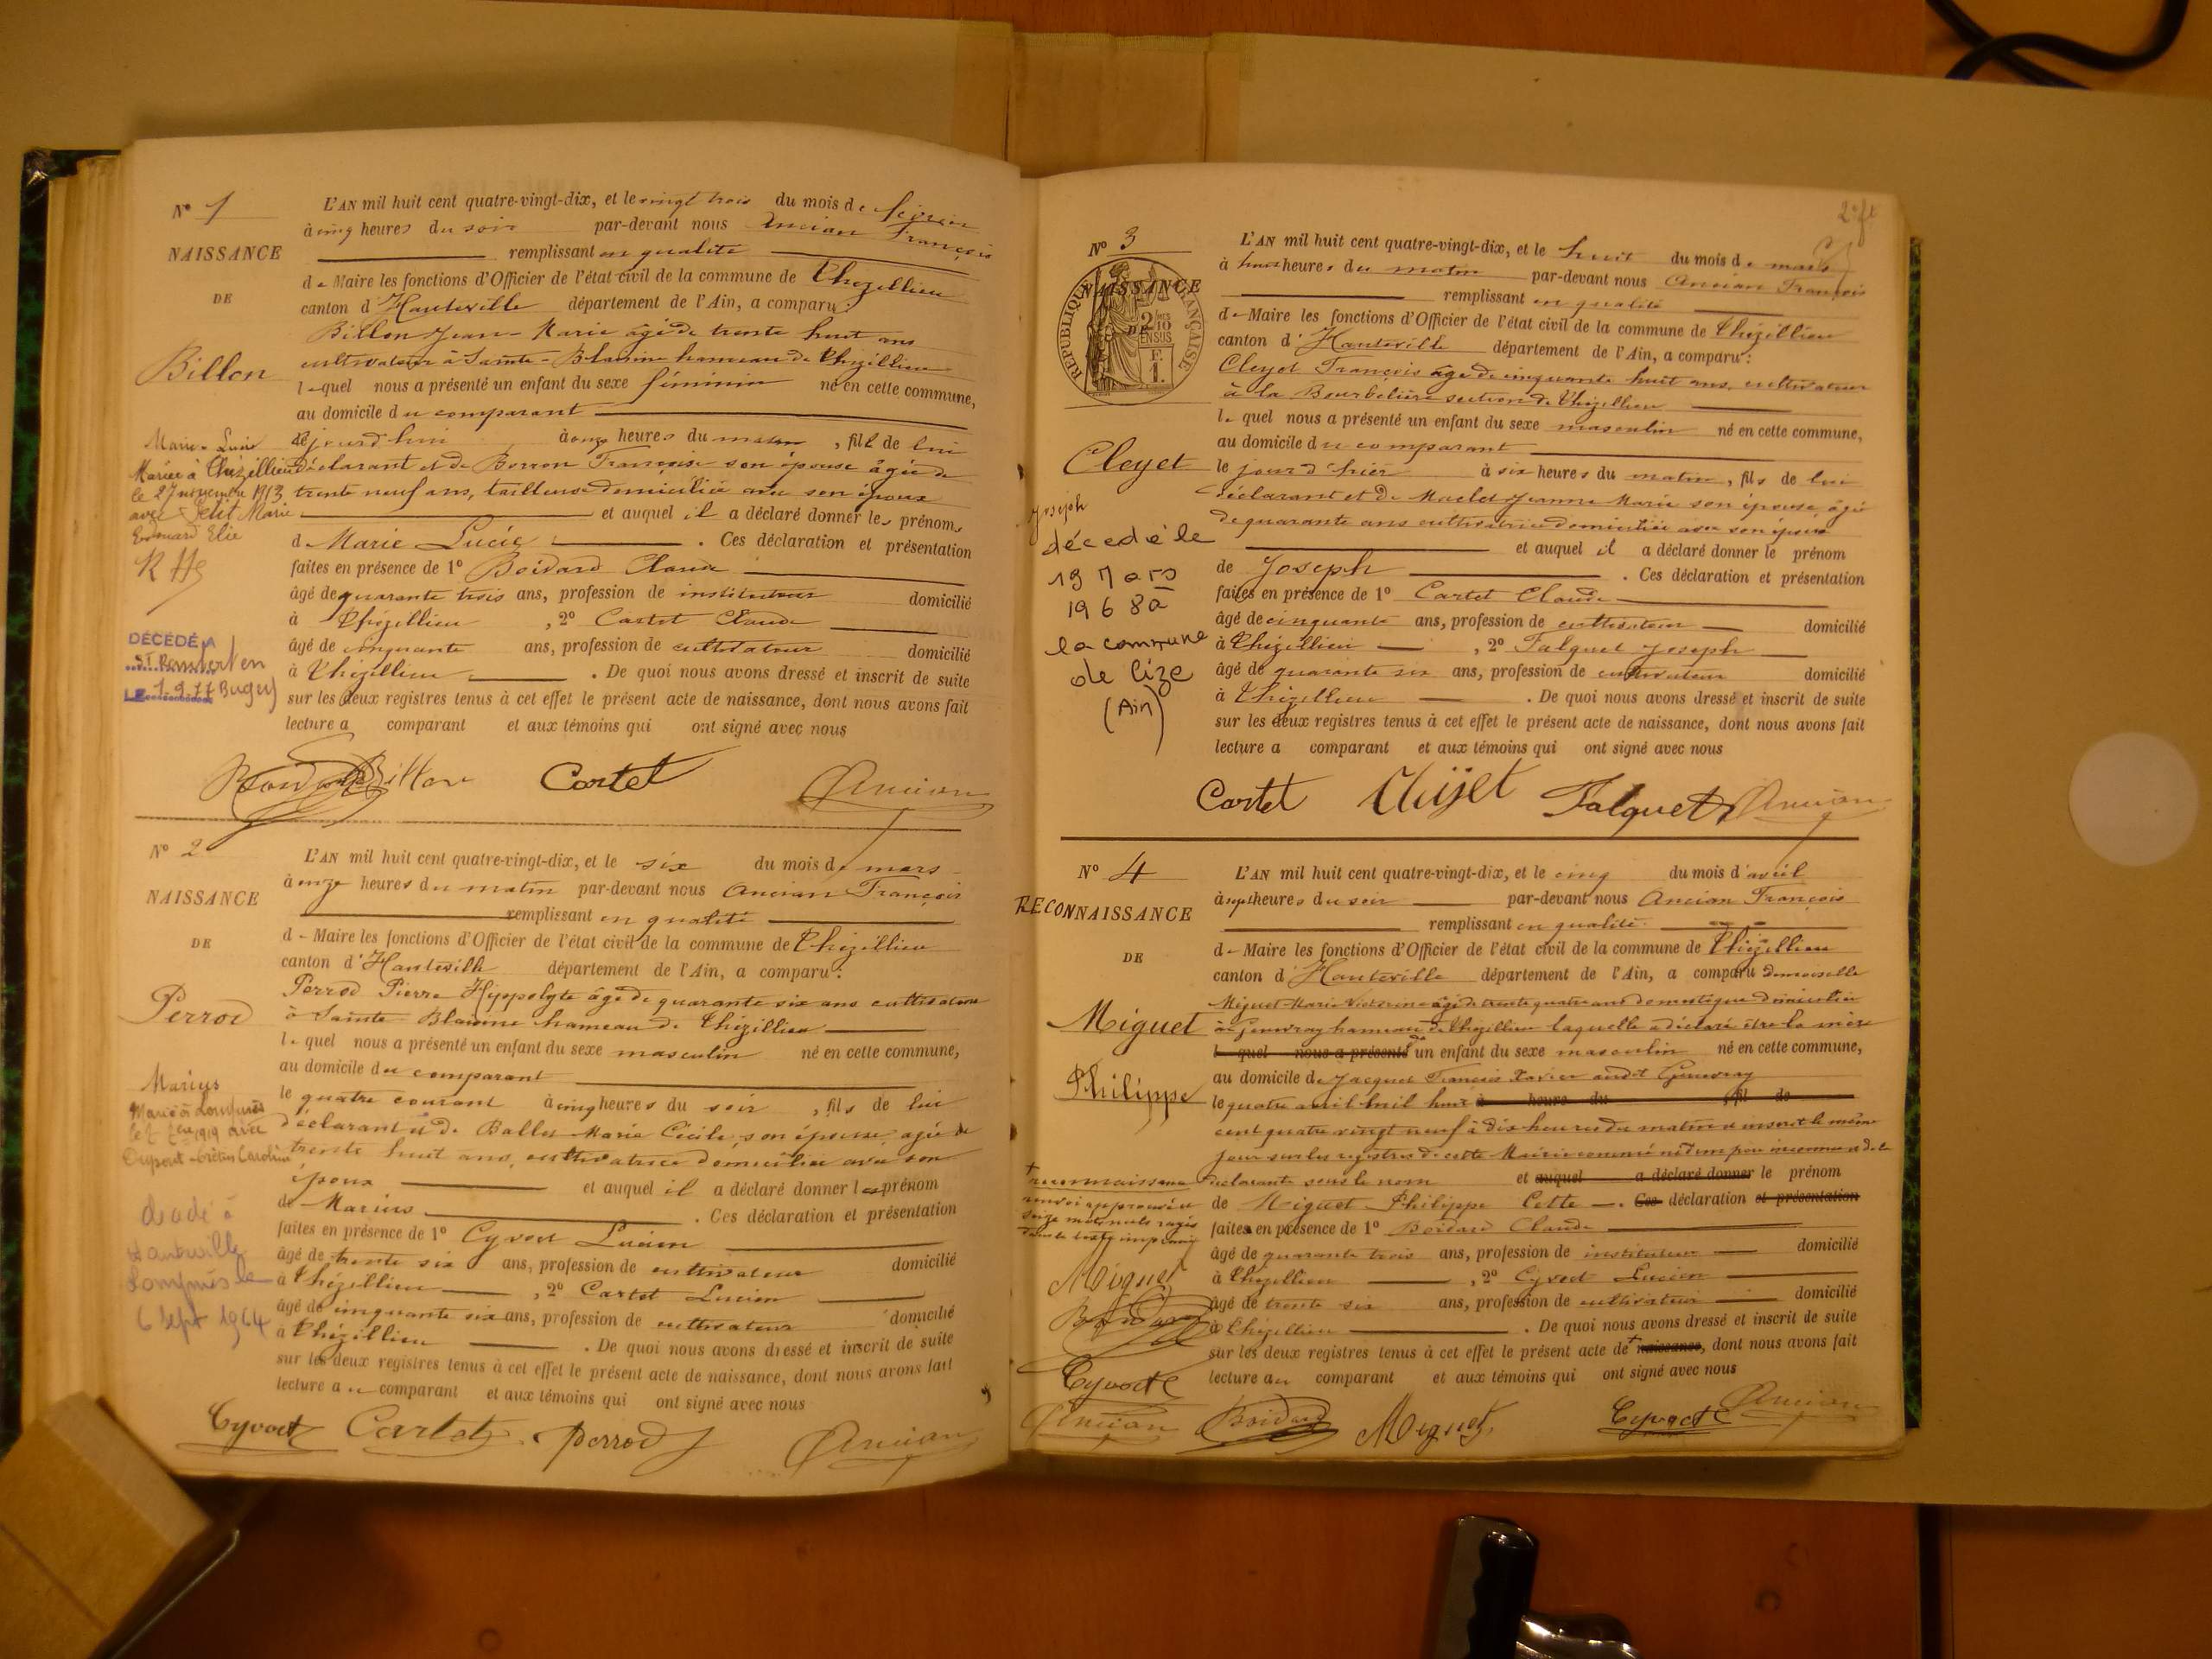 N° 1
NAISSANCE
DE
Billon
Marie-Lucie
Mariée à Thézillieu
le 27 novembre 1913
avec Petit Marie
Edouard Elie
DÉCÉDÉ A
ST Rambert en
LE 1.9.77 Bugey
L'AN mil huit cent quatre-vingt-dix, et le vingt trois du mois de février
à cinq heures du soir par-devant nous Ancian François
remplissant en qualité
de Maire les fonctions d'Officier de l'état civil de la commune de Thézillieu
canton d'Hauteville département de l'Ain, a comparu :
Billon Jean-Marie âgé de trente huit ans
cultivateur à Sainte-Blaisine hameau de Thézillieu
lequel nous a présenté un enfant du sexe féminin né en cette commune,
au domicile du comparant
aujourd'hui à onze heures du matin, fille de lui
déclarant et de Borron Françoise son épouse âgée de
trente neuf ans, tailleuse domiciliée avec son époux
et auquel il a déclaré donner les prénoms
de Marie Lucie. Ces déclaration et présentation
faites en présence de 1° Boidard Claude
âgé de quarante trois ans, profession de instituteur domicilié
à Thézillieu, 2° Cartet Claude
âgé de cinquante ans, profession de cultivateur domicilié
à Thézillieu. De quoi nous avons dressé et inscrit de suite
sur les deux registres tenus à cet effet le présent acte de naissance, dont nous avons fait
lecture a comparant et aux témoins qui ont signé avec nous
Boidard Billon Cartet Ancian
N° 2
NAISSANCE
DE
Perrod
Marius
Marié à Lompnes
le 1919 avec
Dupont Caroline
décédé à
Hauteville
Lompnes le
6 Sept 1964
L'AN mil huit cent quatre-vingt-dix, et le six du mois de mars
à onze heures du matin par-devant nous Ancian François
remplissant en qualité
de Maire les fonctions d'Officier de l'état civil de la commune de Thézillieu
canton d'Hauteville département de l'Ain, a comparu :
Perrod Pierre Hippolyte âgé de quarante six ans cultivateur
à Sainte Blaisine hameau de Thézillieu
lequel nous a présenté un enfant du sexe masculin né en cette commune,
au domicile du comparant
le quatre courant à cinq heures du soir, fils de lui
déclarant et de Ballet Marie Cécile, son épouse, agée de
trente huit ans, cultivatrice domiciliée avec son
époux et auquel il a déclaré donner le prénom
de Marius. Ces déclaration et présentation
faites en présence de 1° Cyvoct Lucien
âgé de trente six ans, profession de cultivateur domicilié
à Thézillieu, 2° Cartet Lucien
âgé de cinquante six ans, profession de cultivateur domicilié
à Thézillieu. De quoi nous avons dressé et inscrit de suite
sur les deux registres tenus à cet effet le présent acte de naissance, dont nous avons fait
lecture au comparant et aux témoins qui ont signé avec nous
Cyvoct Cartet Perrod Ancian
2e ft
N° 3
NAISSANCE
DE
RÉPUBLIQUE FRANÇAISE
2/10
EN SUS
F.
1.
Cleyet
Joseph
décedé le
19 Mars
1968 à
la commune
de Cize
(Ain)
L'AN mil huit cent quatre-vingt-dix, et le huit du mois de mars
à heures du matin par-devant nous Ancian François
remplissant en qualité
de Maire les fonctions d'Officier de l'état civil de la commune de Thézillieu
canton d'Hauteville département de l'Ain, a comparu :
Cleyet François âgé de cinquante huit ans, cultivateur
à la Bourbelière section de Thézillieu
lequel nous a présenté un enfant du sexe masculin né en cette commune,
au domicile du comparant
le jour d'hier à six heures du matin, fils de lui
déclarant et de Maclet Jeanne Marie son épouse âgée
de quarante ans cultivatrice domiciliée avec son époux
et auquel il a déclaré donner le prénom
de Joseph. Ces déclaration et présentation
faites en présence de 1° Cartet Claude
âgé de cinquante ans, profession de cultivateur domicilié
à Thézillieu, 2° Falquet Joseph
âgé de quarante six ans, profession de cultivateur domicilié
à Thézillieu. De quoi nous avons dressé et inscrit de suite
sur les deux registres tenus à cet effet le présent acte de naissance, dont nous avons fait
lecture a comparant et aux témoins qui ont signé avec nous
Cartet Cleyet Falquet Ancian
N° 4
RECONNAISSANCE
DE
Miguet
Philippe
reconnaissance
renvoi approuvé
seize mots nuls rayés
dans le texte imprimé
Miguet
Boidard
Cyvoct
Ancian
L'AN mil huit cent quatre-vingt-dix, et le cinq du mois d'avril
à sept heures du soir par-devant nous Ancian François
remplissant en qualité
de Maire les fonctions d'Officier de l'état civil de la commune de Thézillieu
canton d'Hauteville département de l'Ain, a comparu demoiselle
Miguet Marie Victorine âgée de trente quatre ans domestique domiciliée
à Genevray hameau de Thézillieu laquelle a déclaré être la mère
lequel nous a présenté d'un enfant du sexe masculin né en cette commune,
au domicile de Jacquet François Xavier audit Genevray
le quatre avril mil huit à heure du , fil de
cent quatre vingt neuf à dix heures du matin et inscrit le même
jour sur les registres de cette Mairie comme né d'un père inconnu et de la
déclarante sous le nom et auquel a déclaré donner le prénom
de Miguet Philippe Cette. Ces déclaration et présentation
faites en présence de 1° Boidard Claude
âgé de quarante trois ans, profession de instituteur domicilié
à Thézillieu, 2° Cyvoct Lucien
âgé de trente six ans, profession de cultivateur domicilié
à Thézillieu. De quoi nous avons dressé et inscrit de suite
sur les deux registres tenus à cet effet le présent acte de naissance, dont nous avons fait
lecture au comparant et aux témoins qui ont signé avec nous
Boidard Miguet Cyvoct Ancian